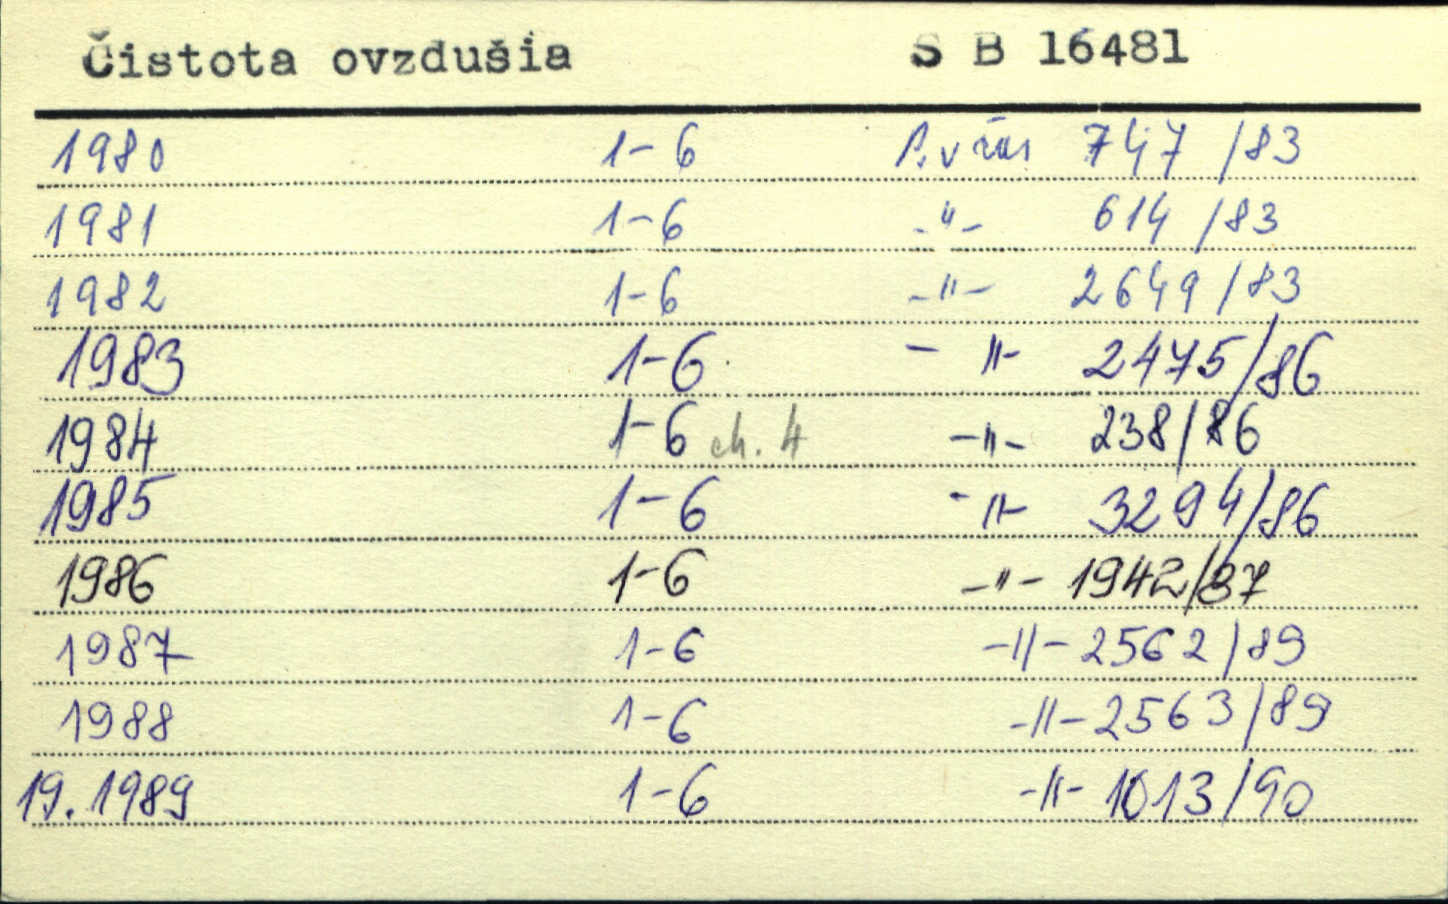 Čistota ovzdušia S B 16481
1980 1-6 P. v čas 747/83
1981 1-6 -"- 614/83
1982 1-6 -"- 2649/83
1983 1-6 -"- 2475/86
1984 1-6 ch. 4 -"- 238/86
1985 1-6 -"- 3294/86
1986 1-6 -"- 1942/87
1987 1-6 -"- 2562/89
1988 1-6 -"- 2563/89
19. 1989 1-6 -"- 1013/90